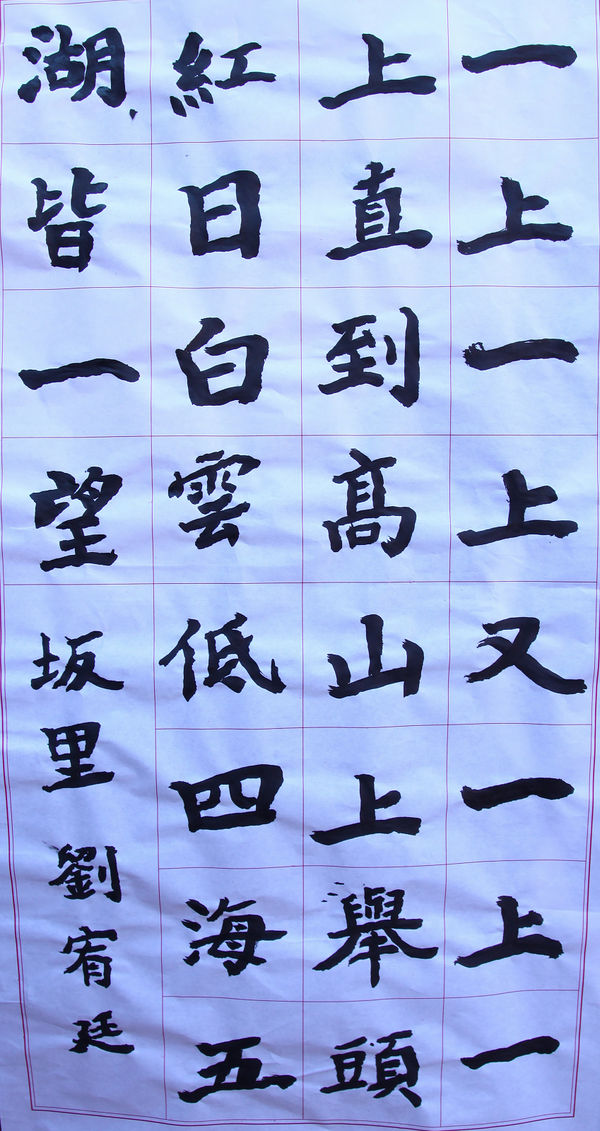 一上一上又一上一
上直到高山上舉頭
紅日白雲低四海五
湖皆一望坂里劉宥廷